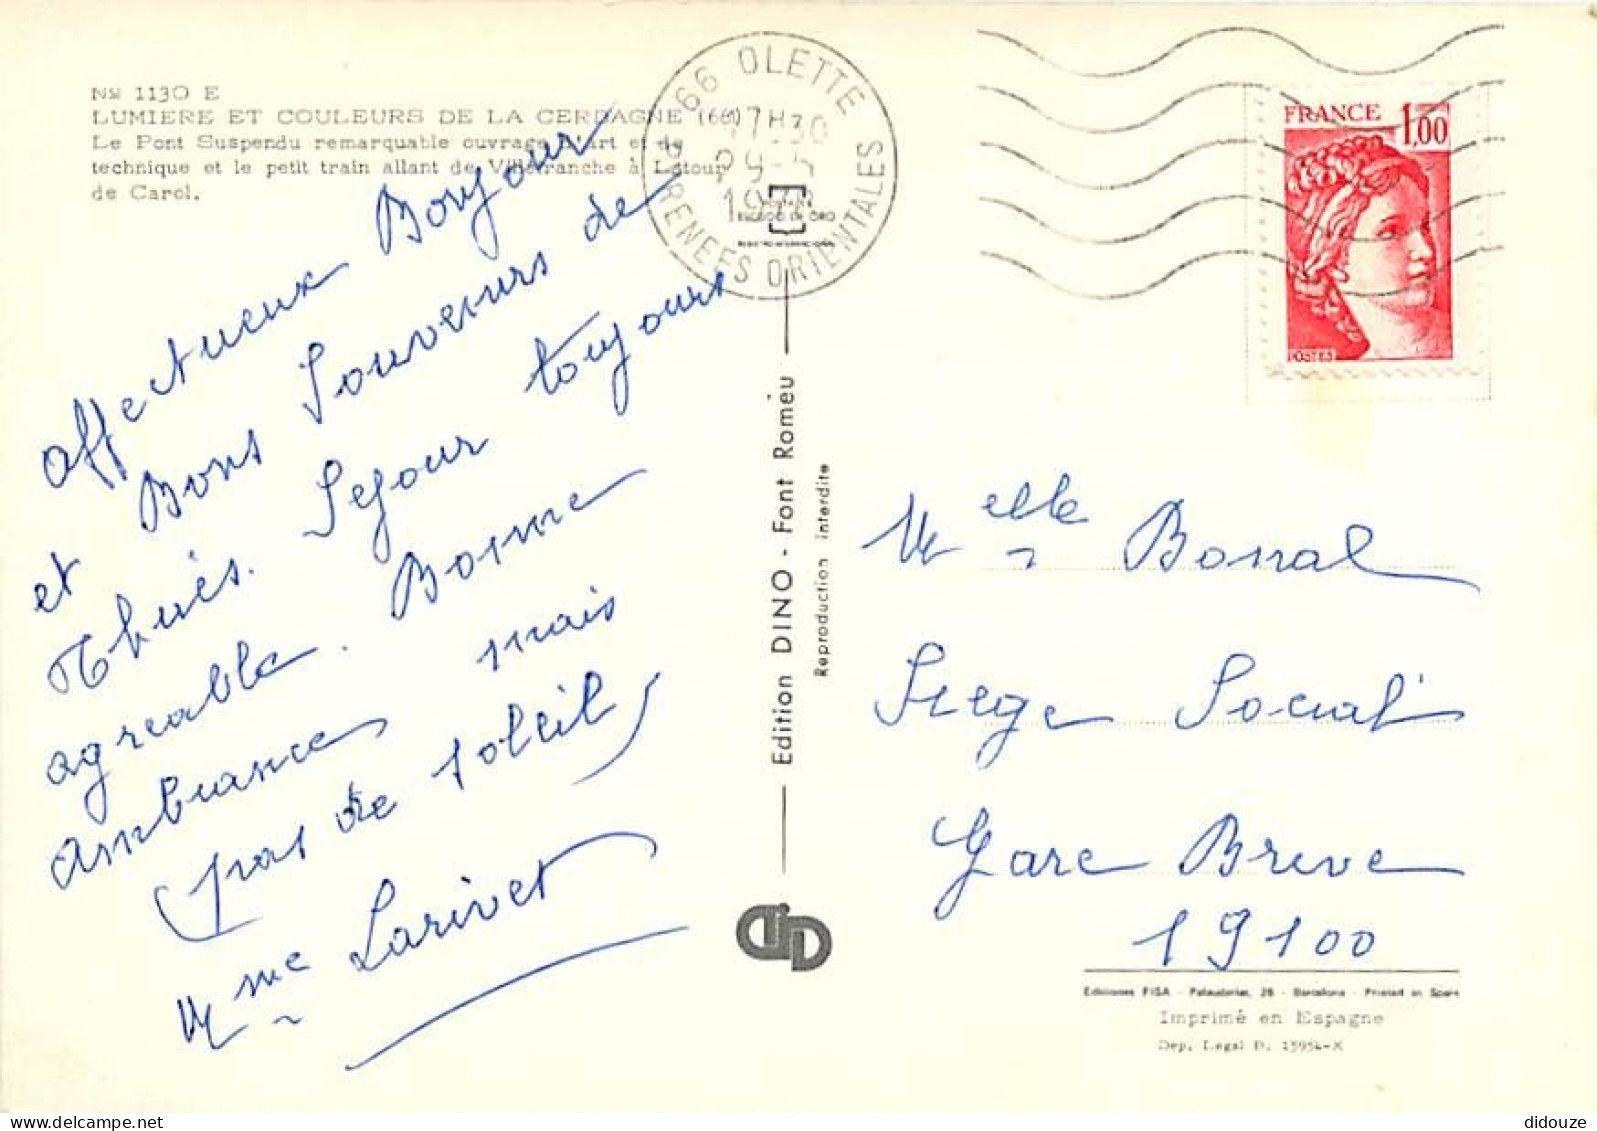 No 1130 E
LUMIERE ET COULEURS DE LA CERDAGNE (66)
Le Pont Suspendu remarquable ouvrage d'art et de
technique et le petit train allant de Villefranche à Latour
de Carol.
affectueux Bonjour
et Bons Souvenirs de
Thuès. Séjour toujours
agreable. Bonne
Ambiance mais
pas de soleil
Mme Larivet
66 OLETTE
17H30
29-5
PYRENEES ORIENTALES
ESCUDO DE ORO
Edition DINO - Font Roméu
Reproduction interdite
FRANCE 1,00
POSTES
Melle Bonnal
Siege Social
Gare Brive
19100
Ediciones FISA - Palaudarias, 26 - Barcelona - Printed in Spain
Imprimé en Espagne
Dep. Legal B. 15954-X
didouze